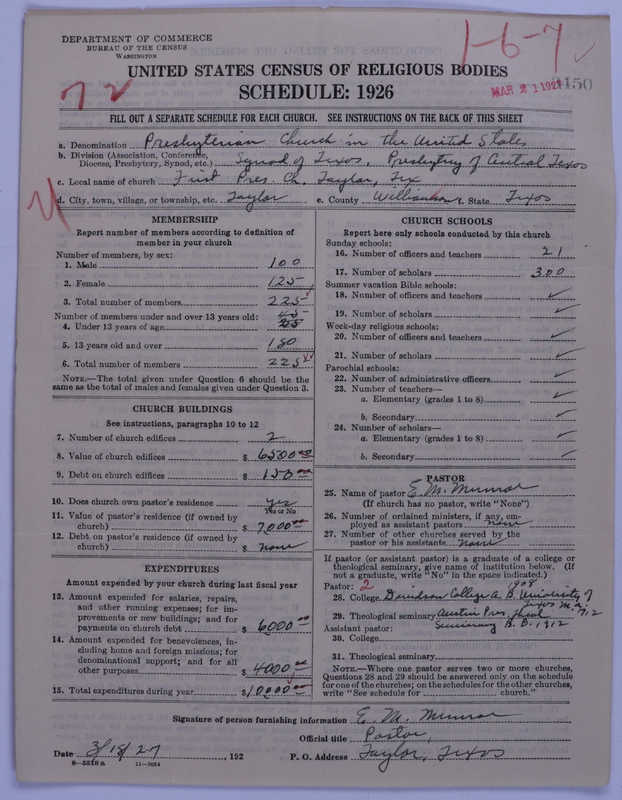 DEPARTMENT OF COMMERCE
BUREAU OF THE CENSUS
WASHINGTON
1-6-7
MAR 21 1927
72
UNITED STATES CENSUS OF RELIGIOUS BODIES
SCHEDULE: 1926
FILL OUT A SEPARATE SCHEDULE FOR EACH CHURCH. SEE INSTRUCTIONS ON THE BACK OF THIS SHEET
a. Denomination Presbyterian Church in the United States
b. Division (Association, Conference, Diocese, Presbytery, Synod, etc.) Synod of Texas, Presbytery of Central Texas
c. Local name of church First Pres. Ch. Taylor, Tex
d. City, town, village, or township, etc. Taylor e. County Williamson f. State Texas
MEMBERSHIP
Report number of members according to definition of
member in your church
Number of members, by sex:
1. Male 100
2. Female 125
3. Total number of members 225
Number of members under and over 13 years old:
4. Under 13 years of age 45
5. 13 years old and over 180
6. Total number of members 225
NOTE.—The total given under Question 6 should be
same as the total of males and females given under Question 3.
CHURCH BUILDINGS
See instructions, paragraphs 10 to 12
7. Number of church edifices 2
8. Value of church edifices $ 6500.00
9. Debt on church edifices $ 150.00
10. Does church own pastor's residence yes
Yes or No
11. Value of pastor's residence (if owned by
church) $ 7000.00
12. Debt on pastor's residence (if owned by
church) $ none
EXPENDITURES
Amount expended by your church during last fiscal year
13. Amount expended for salaries, repairs,
and other running expenses; for im-
provements or new buildings; and for
payments on church debt $ 6000.00
14. Amount expended for benevolences, in-
cluding home and foreign missions; for
denominational support; and for all
other purposes $ 4000.00
15. Total expenditures during year $ 10000.00
CHURCH SCHOOLS
Report here only schools conducted by this church
Sunday schools:
16. Number of officers and teachers 21
17. Number of scholars 300
Summer vacation Bible schools:
18. Number of officers and teachers
19. Number of scholars
Week-day religious schools:
20. Number of officers and teachers
21. Number of scholars
Parochial schools:
22. Number of administrative officers
23. Number of teachers—
a. Elementary (grades 1 to 8)
b. Secondary
24. Number of scholars—
a. Elementary (grades 1 to 8)
b. Secondary
PASTOR
25. Name of pastor E. M. Munroe
(If church has no pastor, write "None")
26. Number of ordained ministers, if any, em-
ployed as assistant pastors none
27. Number of other churches served by the
pastor or his assistants none
If pastor (or assistant pastor) is a graduate of a college or
theological seminary, give name of institution below. (If
not a graduate, write "No" in the space indicated.)
Pastor: 2
28. College Davidson College A. B. 1908 University of Texas M. A. 1912
29. Theological seminary Austin Pres. Theol. Seminary B. D. 1912
Assistant pastor:
30. College
31. Theological seminary
NOTE.—Where one pastor serves two or more churches,
Questions 28 and 29 should be answered only on the schedule
for one of the churches; on the schedules for the other churches,
write "See schedule for church."
Signature of person furnishing information E. M. Munroe
Official title Pastor,
Date 3/18/27, 192 P. O. Address Taylor, Texas
8—5518a 11—9064